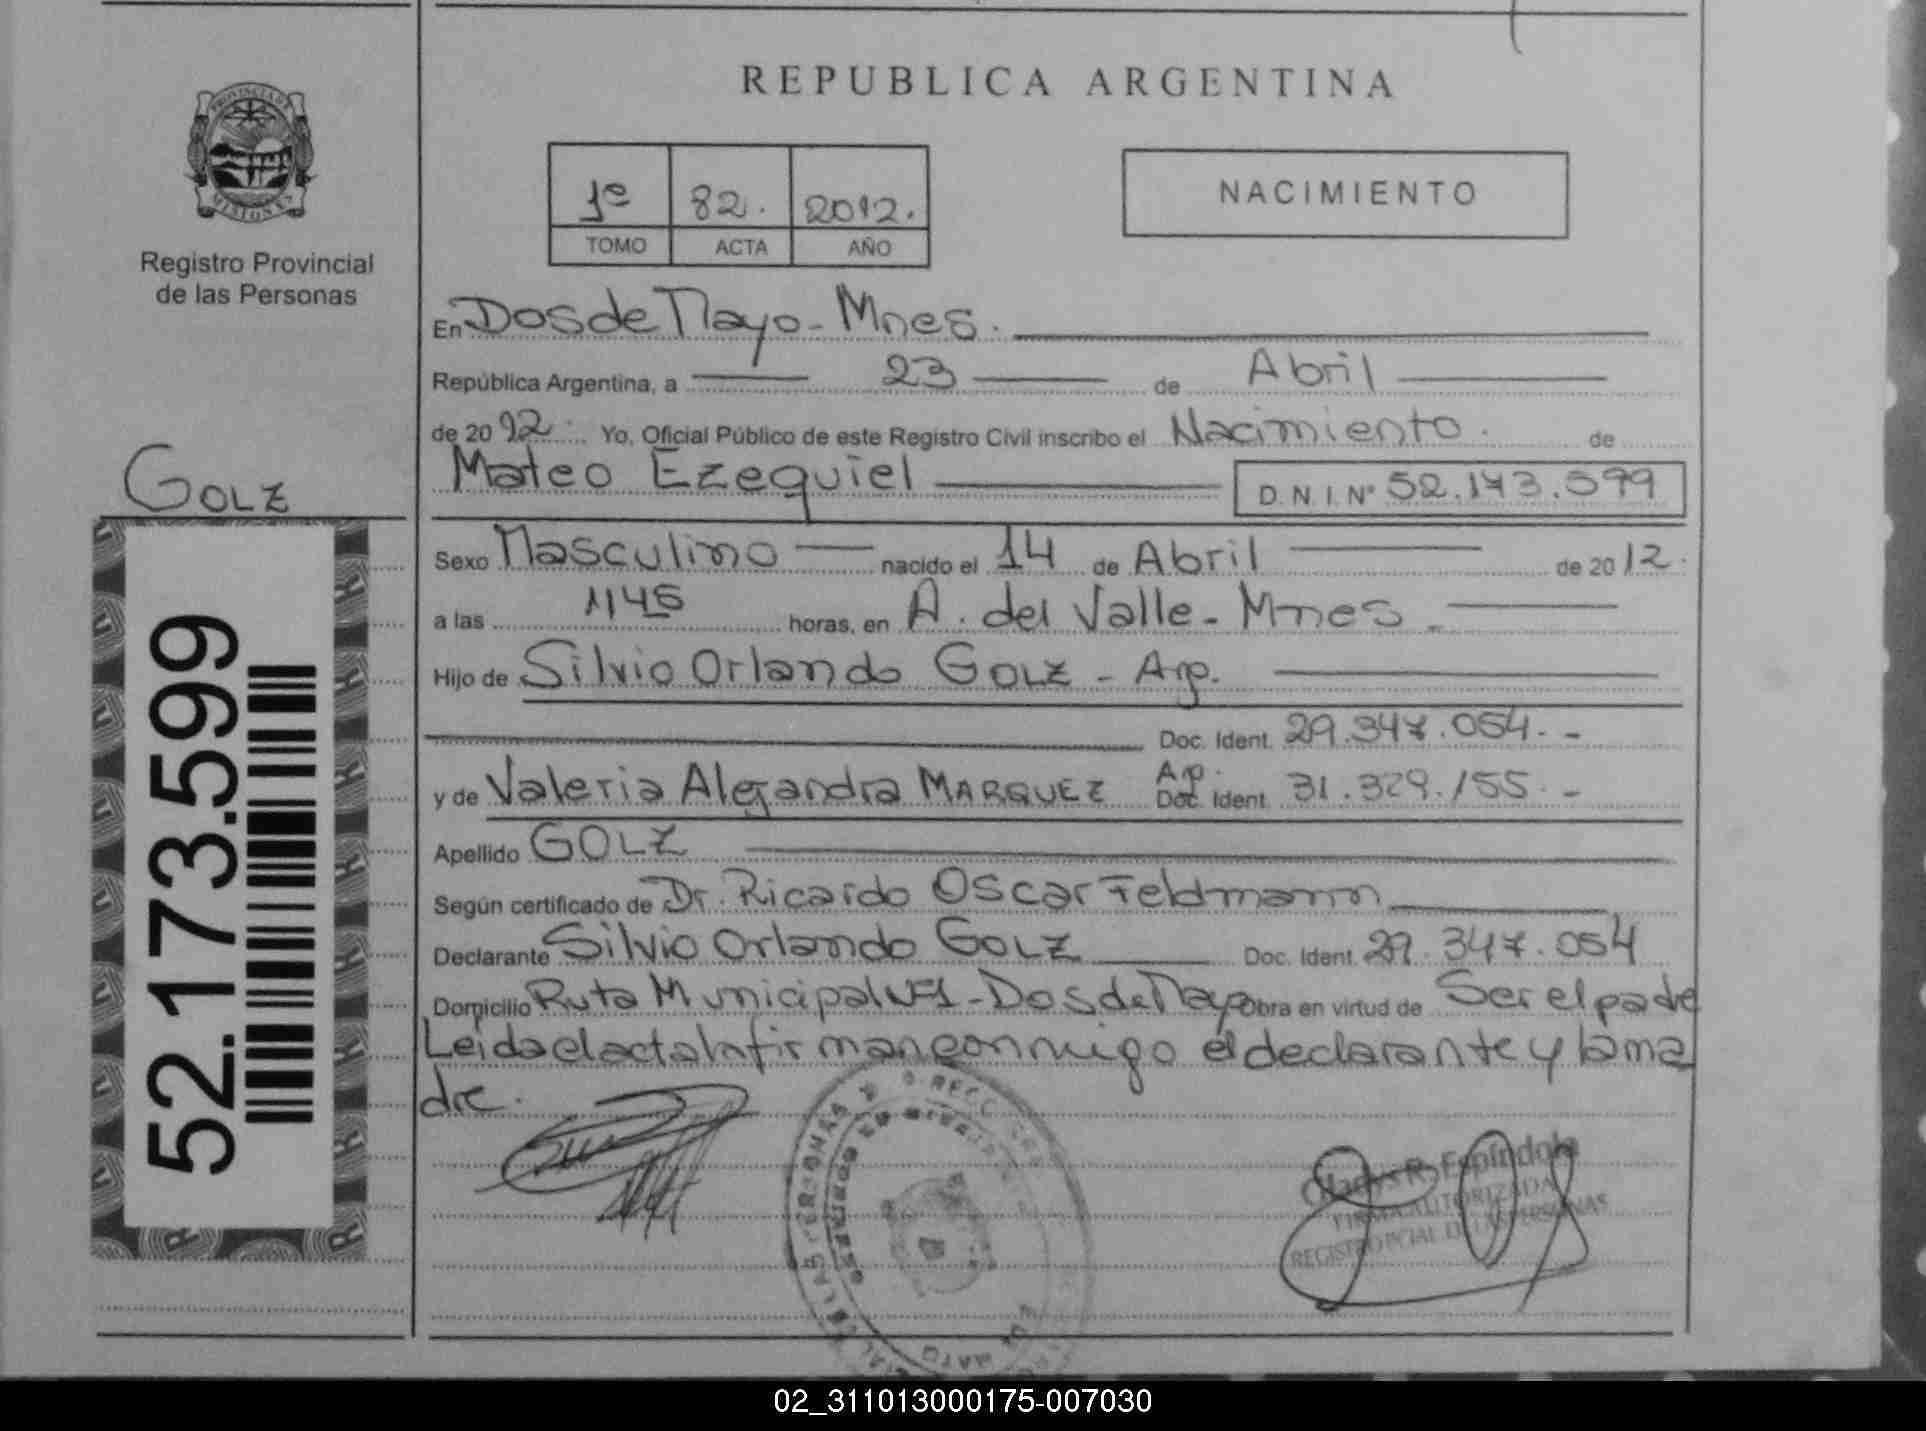 REPUBLICA ARGENTINA
PROVINCIA DE
MISIONES
Registro Provincial
de las Personas
1º 82. 2012.
TOMO ACTA AÑO
NACIMIENTO
En Dos de Mayo - Mnes.
República Argentina, a 23 de Abril
de 20 12. Yo, Oficial Público de este Registro Civil inscribo el Nacimiento. de
Mateo Ezequiel D. N. I. Nº 52.173.599
GOLZ
52.173.599
Sexo Masculino nacido el 14 de Abril de 20 12.
a las 1145 horas, en A. del Valle - Mnes -
Hijo de Silvio Orlando GOLZ - Arg.
Doc. Ident. 29.347.054. -
y de Valeria Alejandra MARQUEZ Arg. Doc. Ident. 31.329.155. -
Apellido GOLZ
Según certificado de Dr. Ricardo Oscar Feldmann
Declarante Silvio Orlando GOLZ Doc. Ident. 29.347.054
Domicilio Ruta Municipal Nº1 - Dos de Mayo Obra en virtud de Ser el padre
Leida el acta la firman conmigo el declarante y la ma
dre.
Gladys R. Espindola
FIRMA AUTORIZADA
REGISTRO PCIAL. DE LAS PERSONAS
02_311013000175-007030